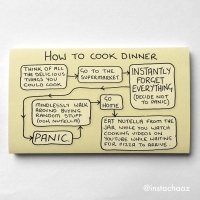 HOW TO COOK DINNER
THINK OF ALL
THE DELICIOUS
THINGS YOU
COULD COOK
GO TO THE
SUPERMARKET
INSTANTLY
FORGET
EVERYTHING
(DECIDE NOT
TO PANIC)
MINDLESSLY WALK
AROUND BUYING
RANDOM STUFF
(OOH NUTELLA)
PANIC
GO
HOME
EAT NUTELLA FROM THE
JAR WHILE YOU WATCH
COOKING VIDEOS ON
YOUTUBE WHILE WAITING
FOR PIZZA TO ARRIVE
@instachaaz